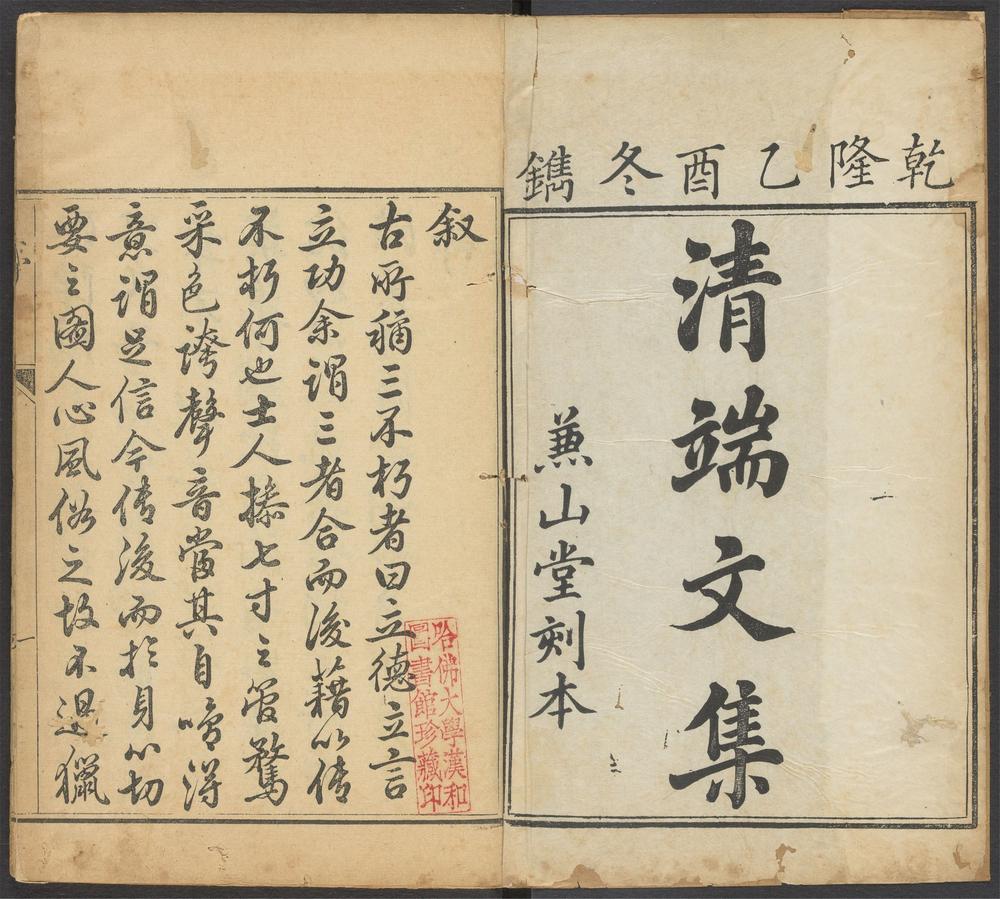 乾隆乙酉冬鐫
清端文集
兼山堂刻本
叙
古所稱三不朽者曰立德立言
立功余謂三者合而後藉以傳
不朽何也士人搡七寸之管騖
采色誇聲音當其自喻得
意謂足信今傳後而於身心切
要之圖人心風俗之故不過獵
哈佛大學漢和
圖書館珍藏印